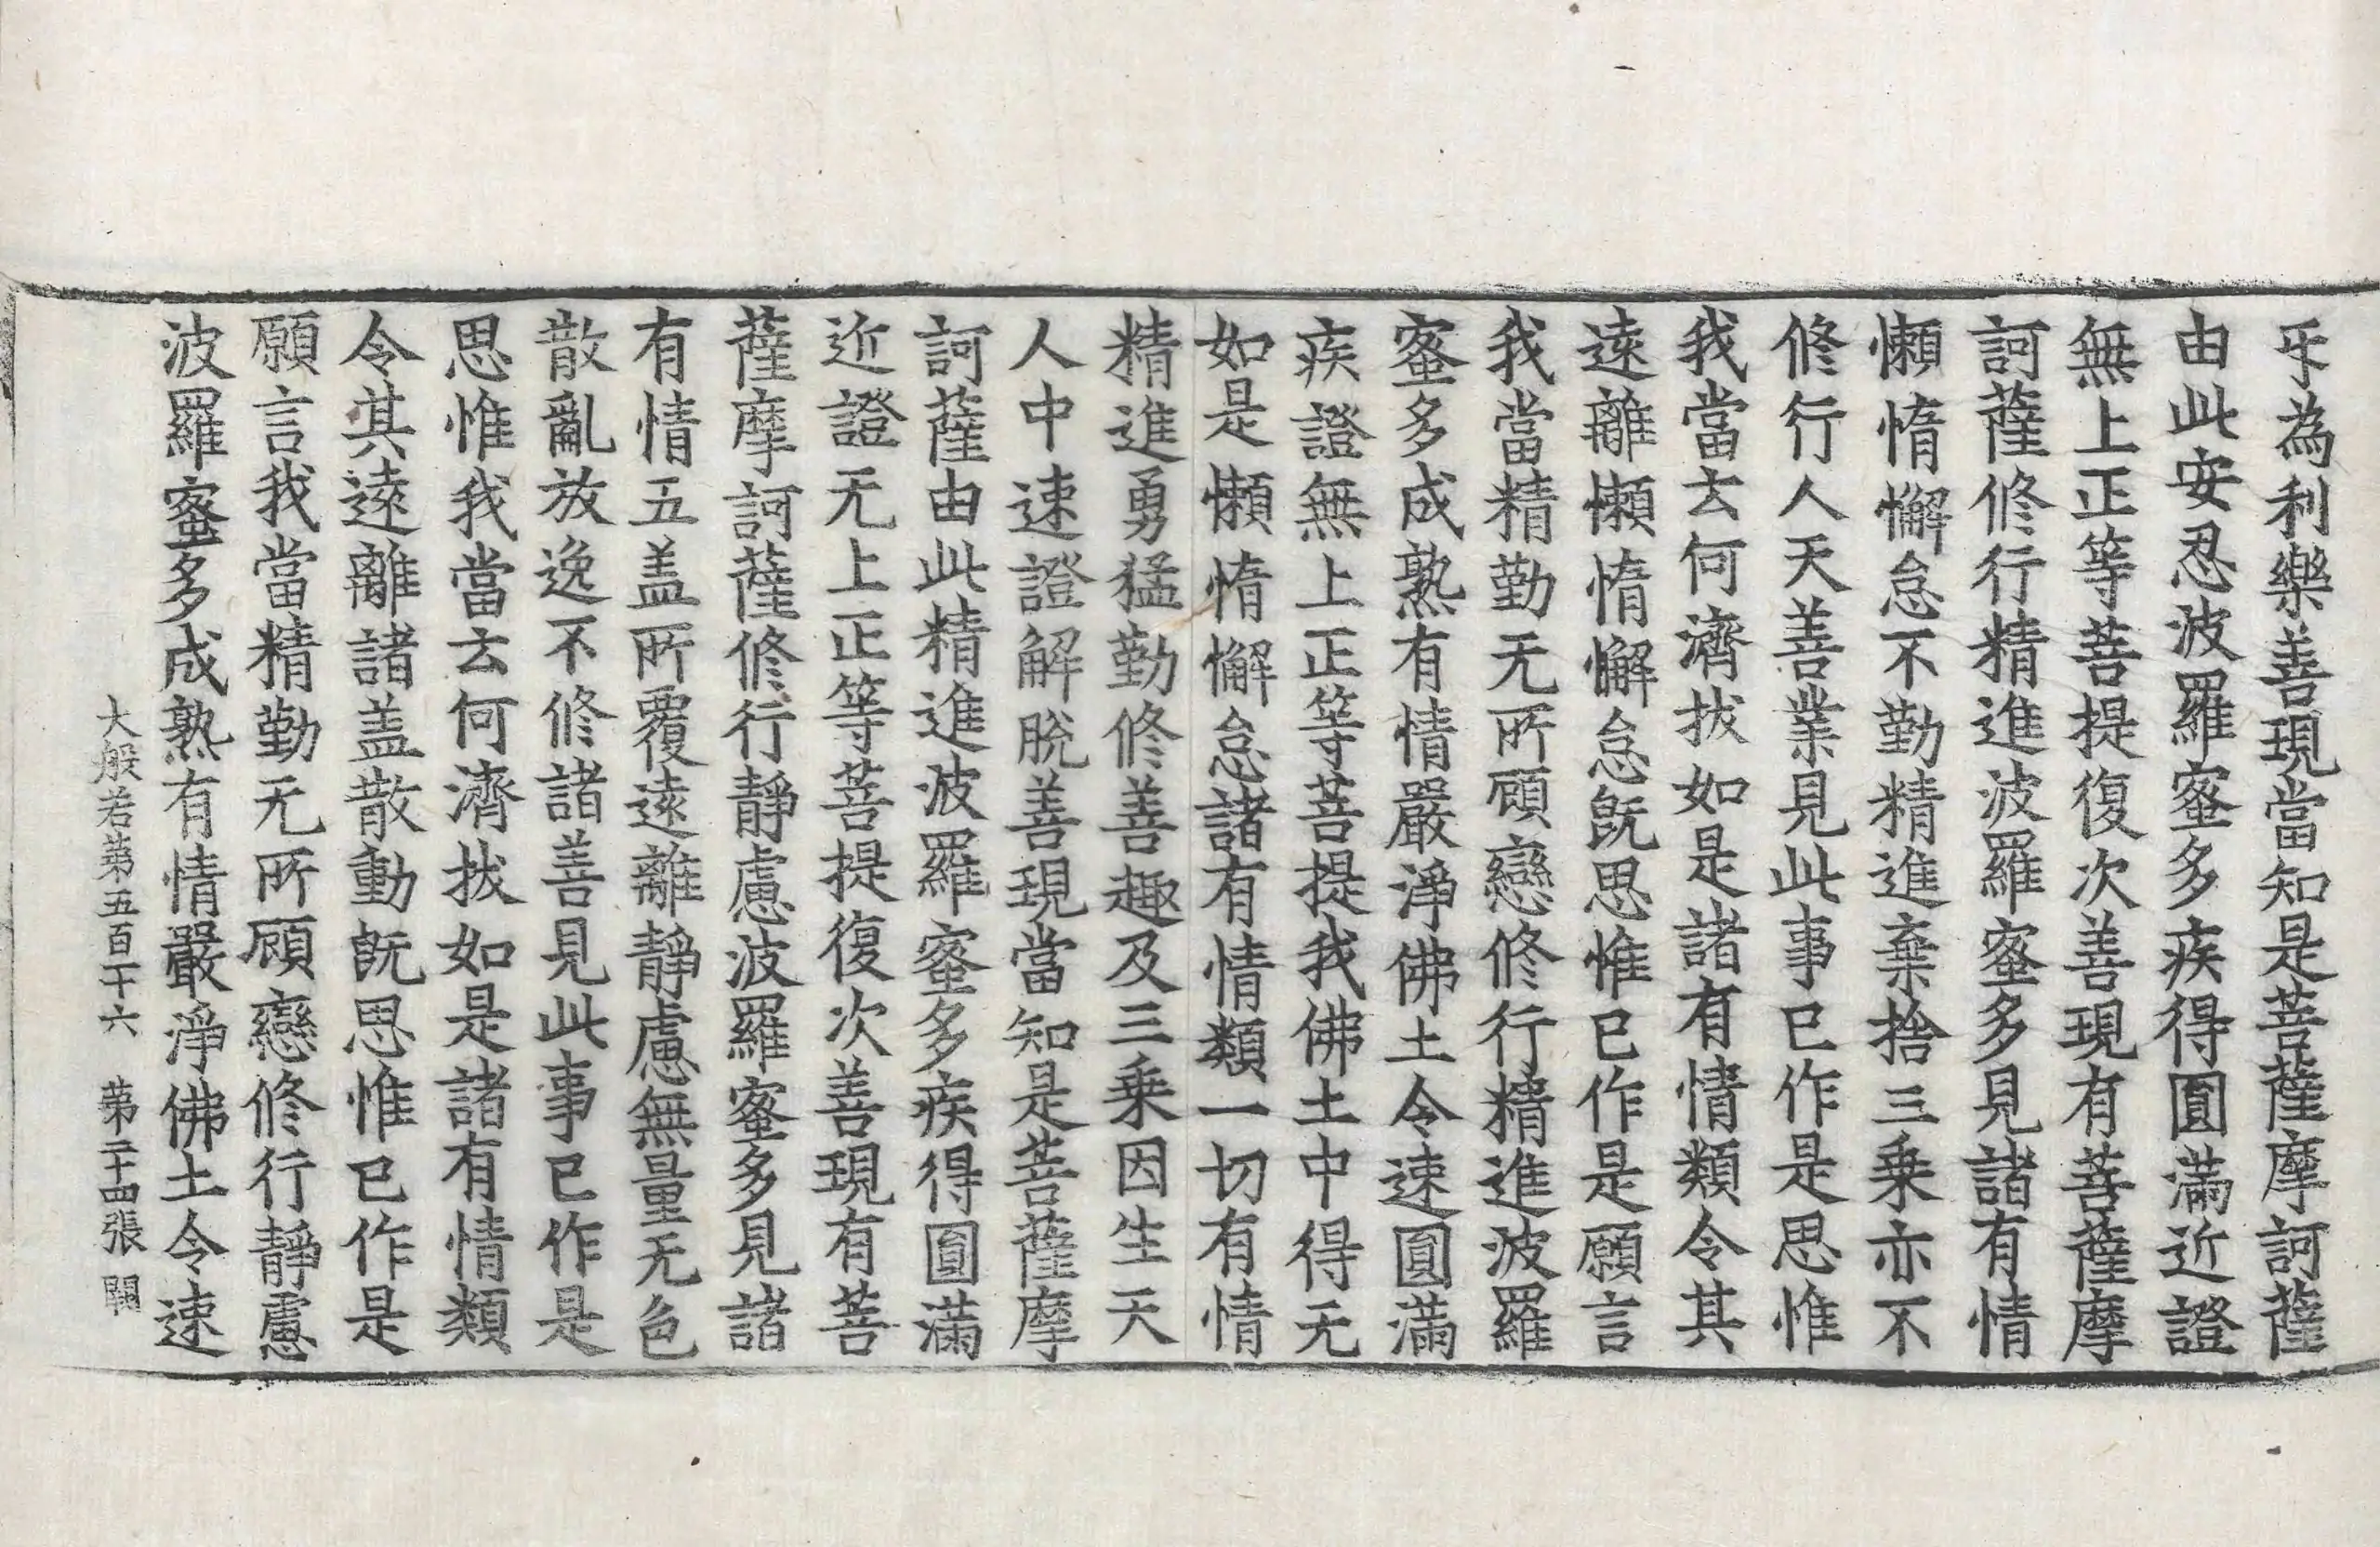 㸦為利樂善現當知是菩薩摩訶薩
由此安忍波羅蜜多疾得圓滿近證
無上正等菩提復次善現有菩薩摩
訶薩修行精進波羅蜜多見諸有情
懶惰懈怠不勤精進棄捨三乗亦不
修行人天善業見此事已作是思惟
我當去何濟拔如是諸有情類令其
遠離懶惰懈怠旣思惟已作是願言
我當精勤无所顧戀修行精進波羅
蜜多成熟有情嚴淨佛土令速圓滿
疾證無上正等菩提我佛土中得无
如是懶惰懈怠諸有情類一切有情
精進勇猛勤修善趣及三乗因生天
人中速證解脫善現當知是菩薩摩
訶薩由此精進波羅蜜多疾得圓滿
近證无上正等菩提復次善現有菩
薩摩訶薩修行靜慮波羅蜜多見諸
有情五盖所覆遠離靜慮無量无色
散亂放逸不修諸善見此事已作是
思惟我當去何濟拔如是諸有情類
令其遠離諸盖散動旣思惟已作是
願言我當精勤无所顧戀修行靜慮
波羅蜜多成熟有情嚴淨佛土令速
大般若第五百十六 第二十四張